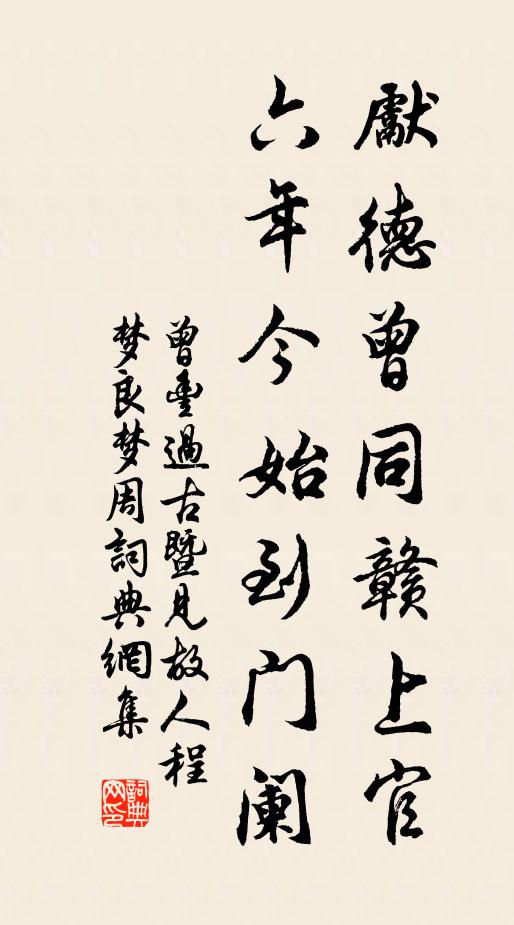 獻德曾同赣上官
六年今始到门阑
曾豊過古暨見故人程
梦良梦周詞典網集
詞典
网印